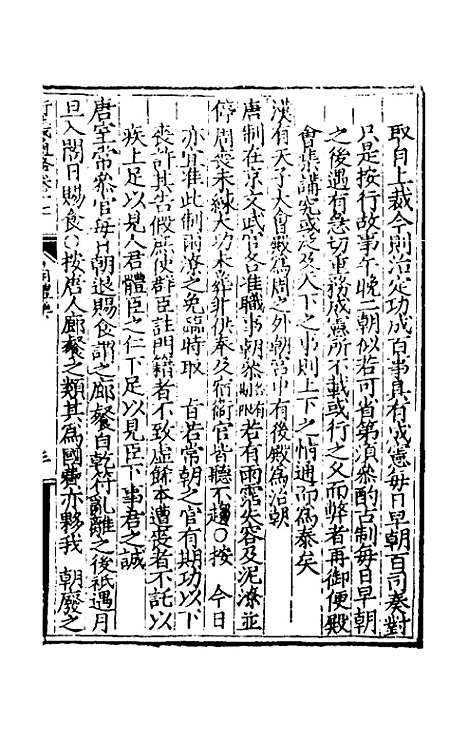 取自上裁今則治定功成百事具有成憲每日早朝百司奏對
只是按行故事午晚二朝似若可省第須參酌古制每日早朝
之後遇有急切重務成憲所不載或行之久而弊者再御便殿
會集講究或泛及天下之事則上下之情通而為泰矣
漢有天子大會殿為周之外朝而中有後殿為治朝
唐制在京文武官各准職事朝參若有雨霑失容及泥潦並
停周喪未練大功未葬非供奉及宿衛官皆聽不趨○按今日
亦宜准此制雨潦之免臨時取 旨若常朝之官有期功以下
喪許其告假所使群臣註門籍者不致虛餙本遭喪者不託以
疾上足以見人君體臣之仁下足以見臣下事君之誠
唐室常參官每日朝退賜食謂之廊餐自乾符亂離之後祇遇月
旦入閤日賜食○按唐人廊餐之類其為國費亦夥我 朝廢之
三